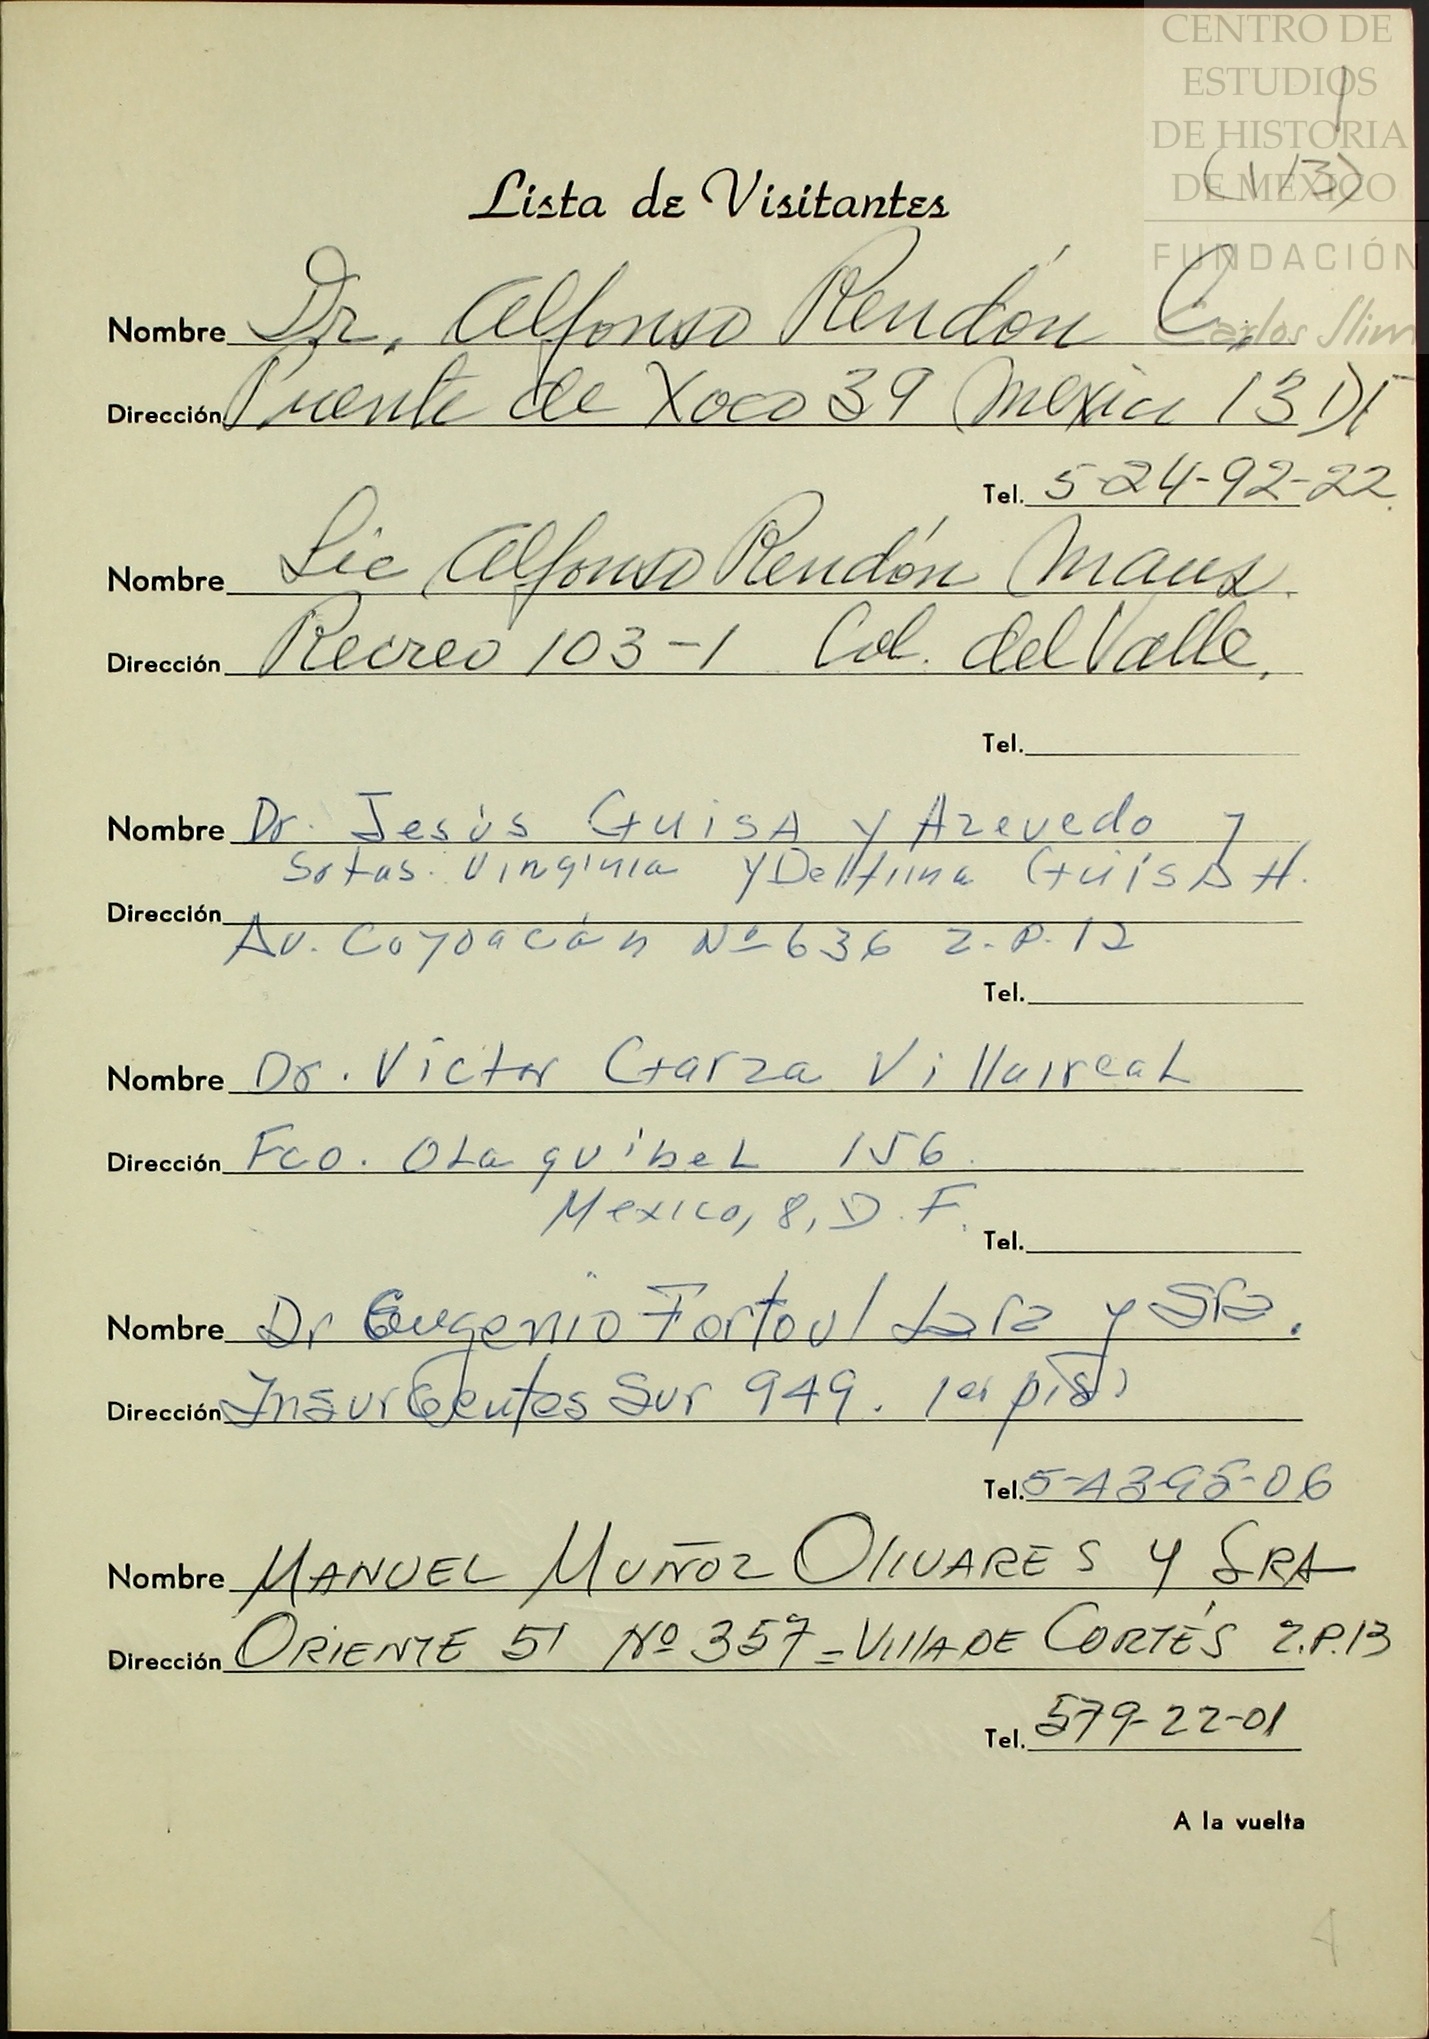 CENTRO DE
ESTUDIOS
DE HISTORIA
DE MEXICO
FUNDACIÓN
Carlos Slim
1
(1/3)
Lista de Visitantes
Nombre Dr. Alfonso Rendón C.
Dirección Puente de Xoco 39 Mexico 13 DF
Tel. 5-24-92-22.
Nombre Lic Alfonso Rendón Maus.
Dirección Recreo 103-1 Col. del Valle.
Tel.
Nombre Dr. Jesús Guisa y Azevedo y
Srtas. Virginia y Delfina Guisa H.
Dirección
Av. Coyoacán Nº 636 Z.P. 12
Tel.
Nombre Dr. Victor Garza Villarreal
Dirección Fco. Olaguibel 156.
Mexico, 8, D.F.
Tel.
Nombre Dr Eugenio Fortoul Lara y Sra.
Dirección Insurgentes Sur 949. 1er piso
Tel. 5-43-95-06
Nombre MANUEL MUÑOZ OlIVARES Y SRA
Dirección ORIENTE 51 Nº 357=VIllA DE CORTÉS Z.P.13
Tel. 579-22-01
A la vuelta